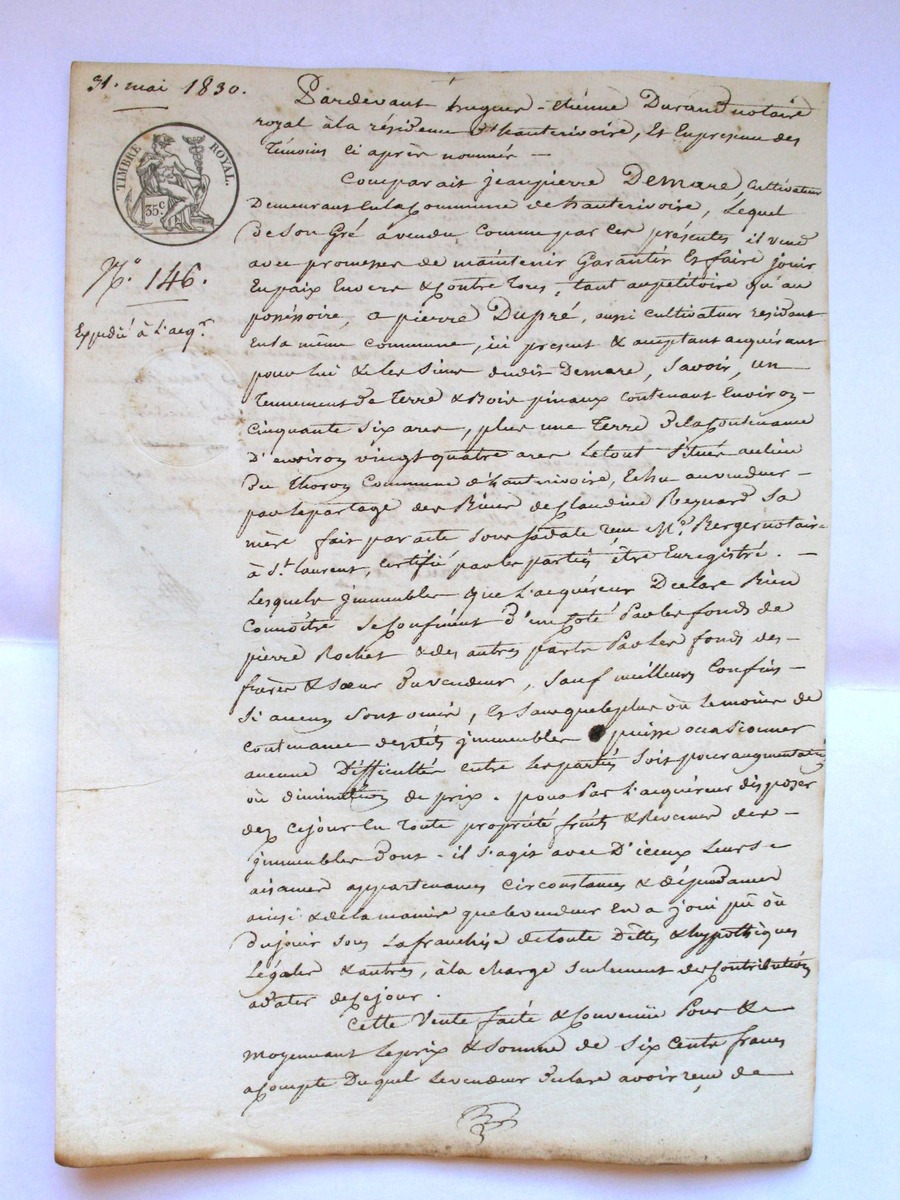 31. mai 1830.
TIMBRE ROYAL.
35 c.
N.° 146.
Expédié à l'acq.r
Pardevant hugues-etienne Durand notaire
royal à la résidence d'hauterivoire, et en presence des
témoins ci après nommés —
Comparait jeanpierre Demare, cultivateur
Demeurant en la Commune de hauterivoire, Lequel
de son Gré a vendu, comme par ces présentes il vend
avec promesses de maintenir Garantir et faire jouir
En paix Envers & Contre tous, tant au petitoire qu'au
possessoire, a pierre Dupré, aussi cultivateur residant
En la même commune, ici present & acceptant acquérant
pour lui & les siens dudit Demare, Savoir, un
Tennement de Terre & Bois pinaux contenant Environ
cinquante six ares, plus une Terre de la Contenance
d'environ vingt quatre ares Le tout Situés au lieu
Du thoron Commune d'hauterivoire, Echu au vendeur
par le partage des Biens de Claudine Reynard Sa
mère fait par acte sous sa date reçu M.e Berger notaire
à S.t Laurent, Certifié par les parties être Enregistré. —
Lesquels jmmeubles que L'acquéreur Déclare Bien
Connoître se Confinent D'un Coté Par les fonds de
pierre Rochet & des autres parts Par Les fonds des
frères & Sœur Du vendeur, Sauf meilleurs Confins
Si aucuns sont omis, Et sans que le plus où Le moins de
Contenance desdits jmmeubles puisse occasionner
aucune Difficultés entre les parties soit pour augmentation
ou diminution de prix. pour Par L'acquéreur disposer
dez ce jour En Toute propriété fruits & Revenus des
jmmeubles Dont il s'agit avec D'iceux Leurs
aisances appartenances circonstances & dépendances
ainsi & de la manière que le vendeur En a joui pû où
Du jouir sous La franchise de toute Dettes & hypothèques
Légales & autres, à la charge seulement des Contributions
a dater de ce jour.
Cette Vente faite & Convenüe Pour &
Moyennant Le prix & Somme de Six Cents francs
a Compte Duquel Le vendeur Déclare avoir reçu de